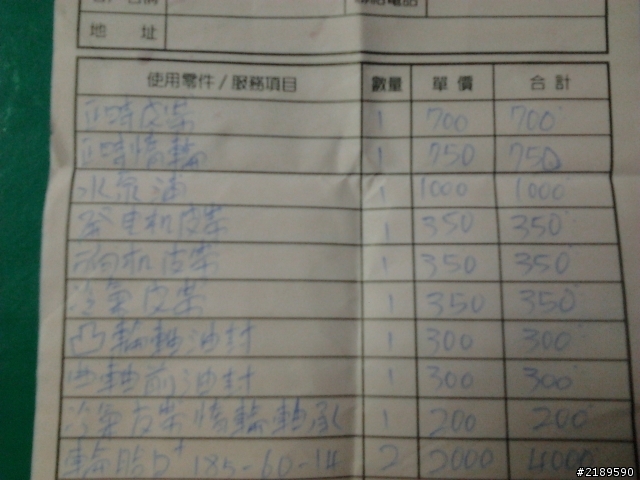 地 址
使用零件/服務項目 數量 單價 合計
正時皮帶 1 700 700
正時惰輪 1 750 750
水泵浦 1 1000 1000
發电机皮帶 1 350 350
机皮帶 1 350 350
冷氣皮帶 1 350 350
凸輪軸油封 1 300 300
曲軸前油封 1 300 300
冷氣皮帶惰輪軸承 1 200 200
輪胎 185-60-14 2 2000 4000
#2189590